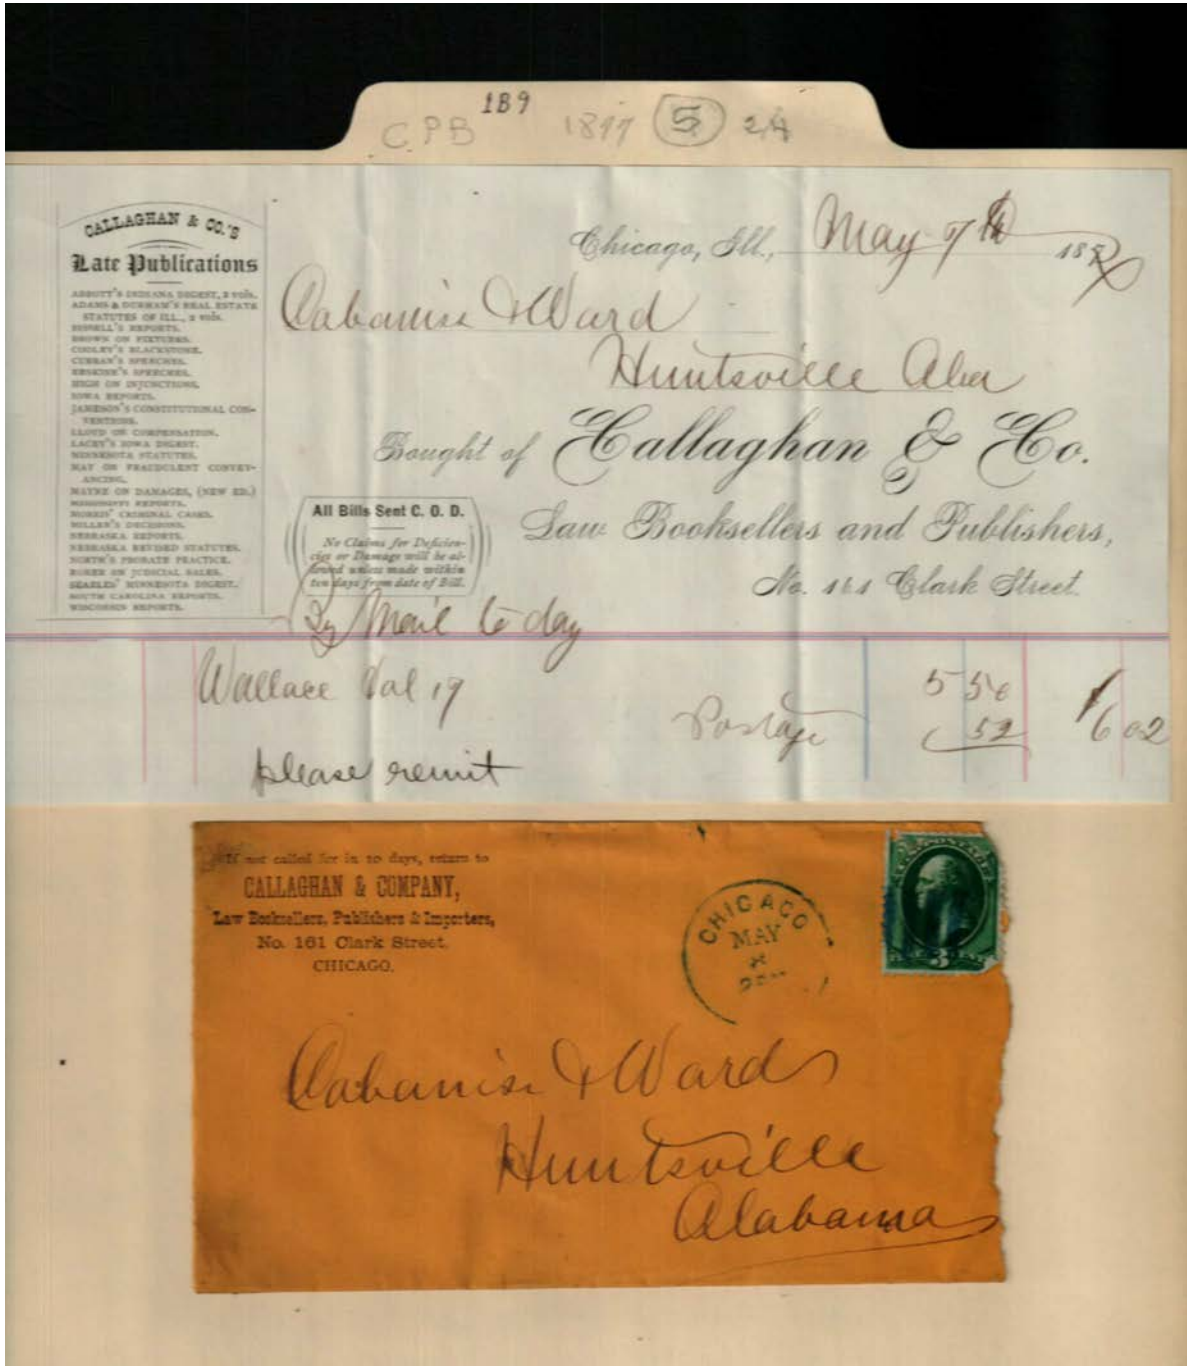 CPB 189 1877 5 2A
CALLAGHAN & CO.'S
Late Publications
ABBOTT'S INDIANA DIGEST, 2 vols.
ADAMS & DURHAM'S REAL ESTATE
STATUTES OF ILL., 2 vols.
BISSELL'S REPORTS.
BROWN ON FIXTURES.
COOLEY'S BLACKSTONE.
CURRAN'S SPEECHES.
ERSKINE'S SPEECHES.
HIGH ON INJUNCTIONS.
IOWA REPORTS.
JAMESON'S CONSTITUTIONAL CON-
VENTIONS.
LLOYD ON COMPENSATION.
LACEY'S IOWA DIGEST.
MINNESOTA STATUTES.
MAY ON FRAUDULENT CONVEY-
ANCING.
MAYNE ON DAMAGES, (NEW ED.)
MISSISSIPPI REPORTS.
MORRIS' CRIMINAL CASES.
MILLER'S DECISIONS.
NEBRASKA REPORTS.
NEBRASKA REVISED STATUTES.
NORTH'S PROBATE PRACTICE.
RORER ON JUDICIAL SALES.
SEARLES' MINNESOTA DIGEST.
SOUTH CAROLINA REPORTS.
WISCONSIN REPORTS.
Chicago, Ill., May 7th 187
Cabaniss & Ward
Huntsville Ala
Bought of Callaghan & Co.
Law Booksellers and Publishers,
No. 161 Clark Street.
All Bills Sent C. O. D.
No Claims for Deficien-
cies or Damage will be al-
lowed unless made within
ten days from date of Bill.
By Mail to day
Wallace Vol 19 5 50
Postage 52 6 02
please remit
If not called for in 10 days, return to
CALLAGHAN & COMPANY,
Law Booksellers, Publishers & Importers,
No. 161 Clark Street,
CHICAGO.
CHICAGO
MAY
8
U.S. POSTAGE
3
Cabaniss & Ward
Huntsville
Alabama